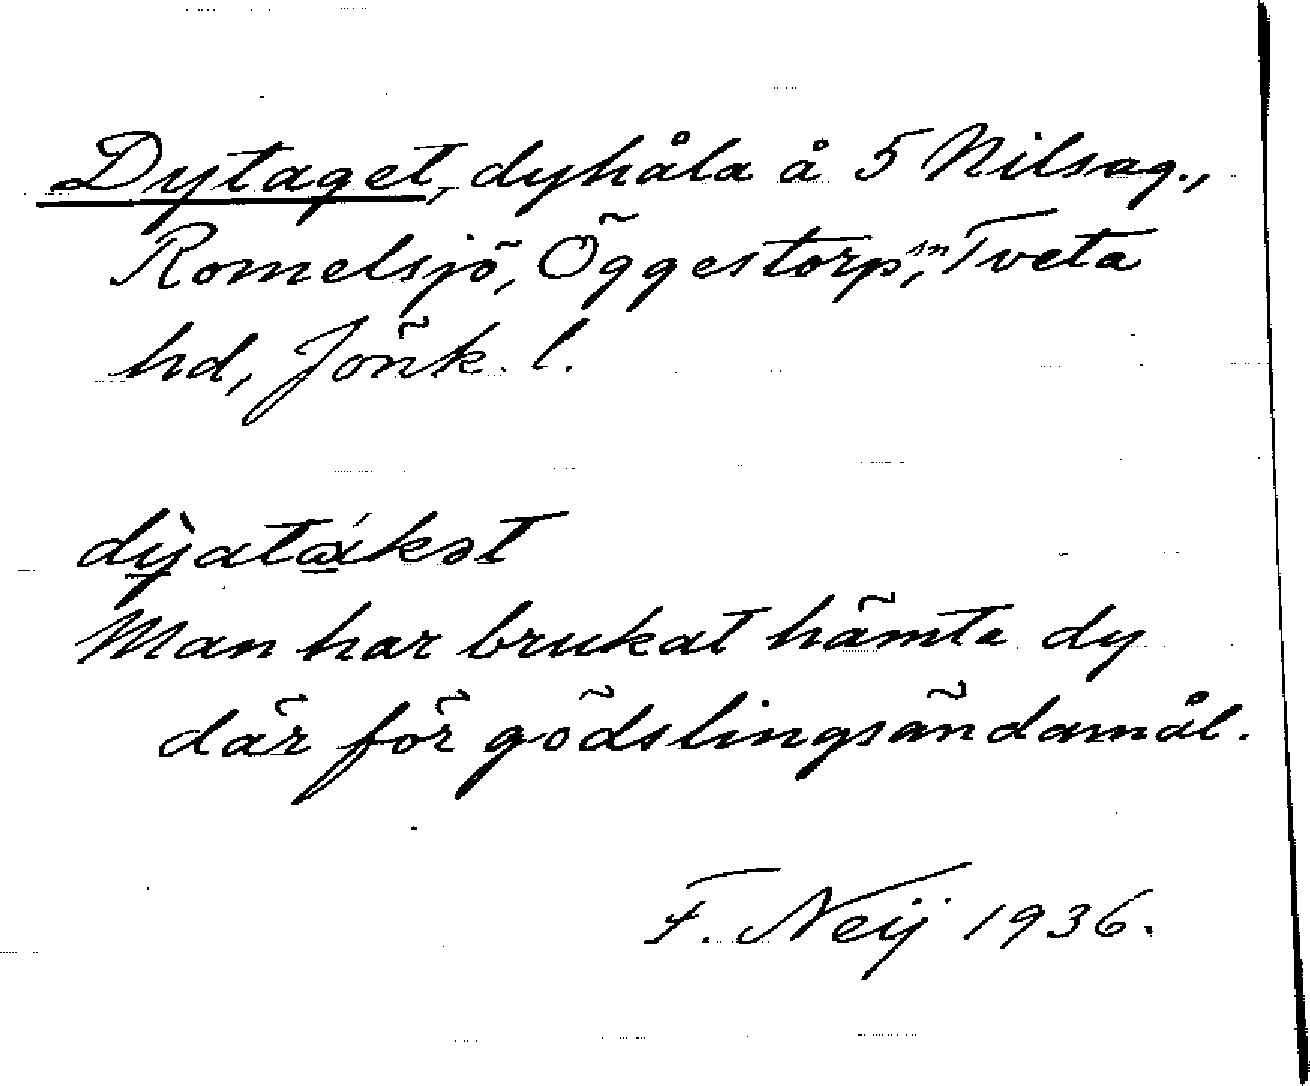 Dytaget, dyhåla å 5 Nilsag.,
Romelsjö, Öggestorp sn, Tveta
hd, Jönk. l.
dỳ̲atá̲kət
Man har brukat hämta dy
där för gödslingsändamål.
F. Neij 1936.